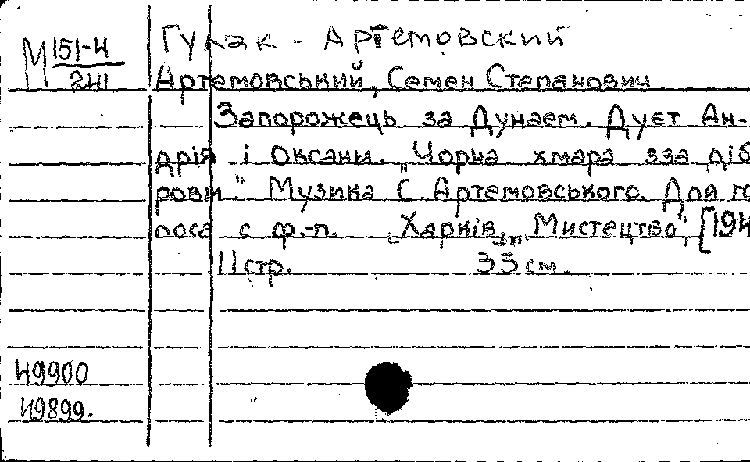 М 151-4
241
Гулак - Артемовский
Артемовський, Семен Степанович
Запорожець за Дунаем. Дует Ан-
дрія і Оксани. „Чорна хмара зза діб
рови." Музика С. Артемовського. Для го
лоса с ф.-п. Харків, „Мистецтво", [194
11 стр. 33 см.
49900
49899.